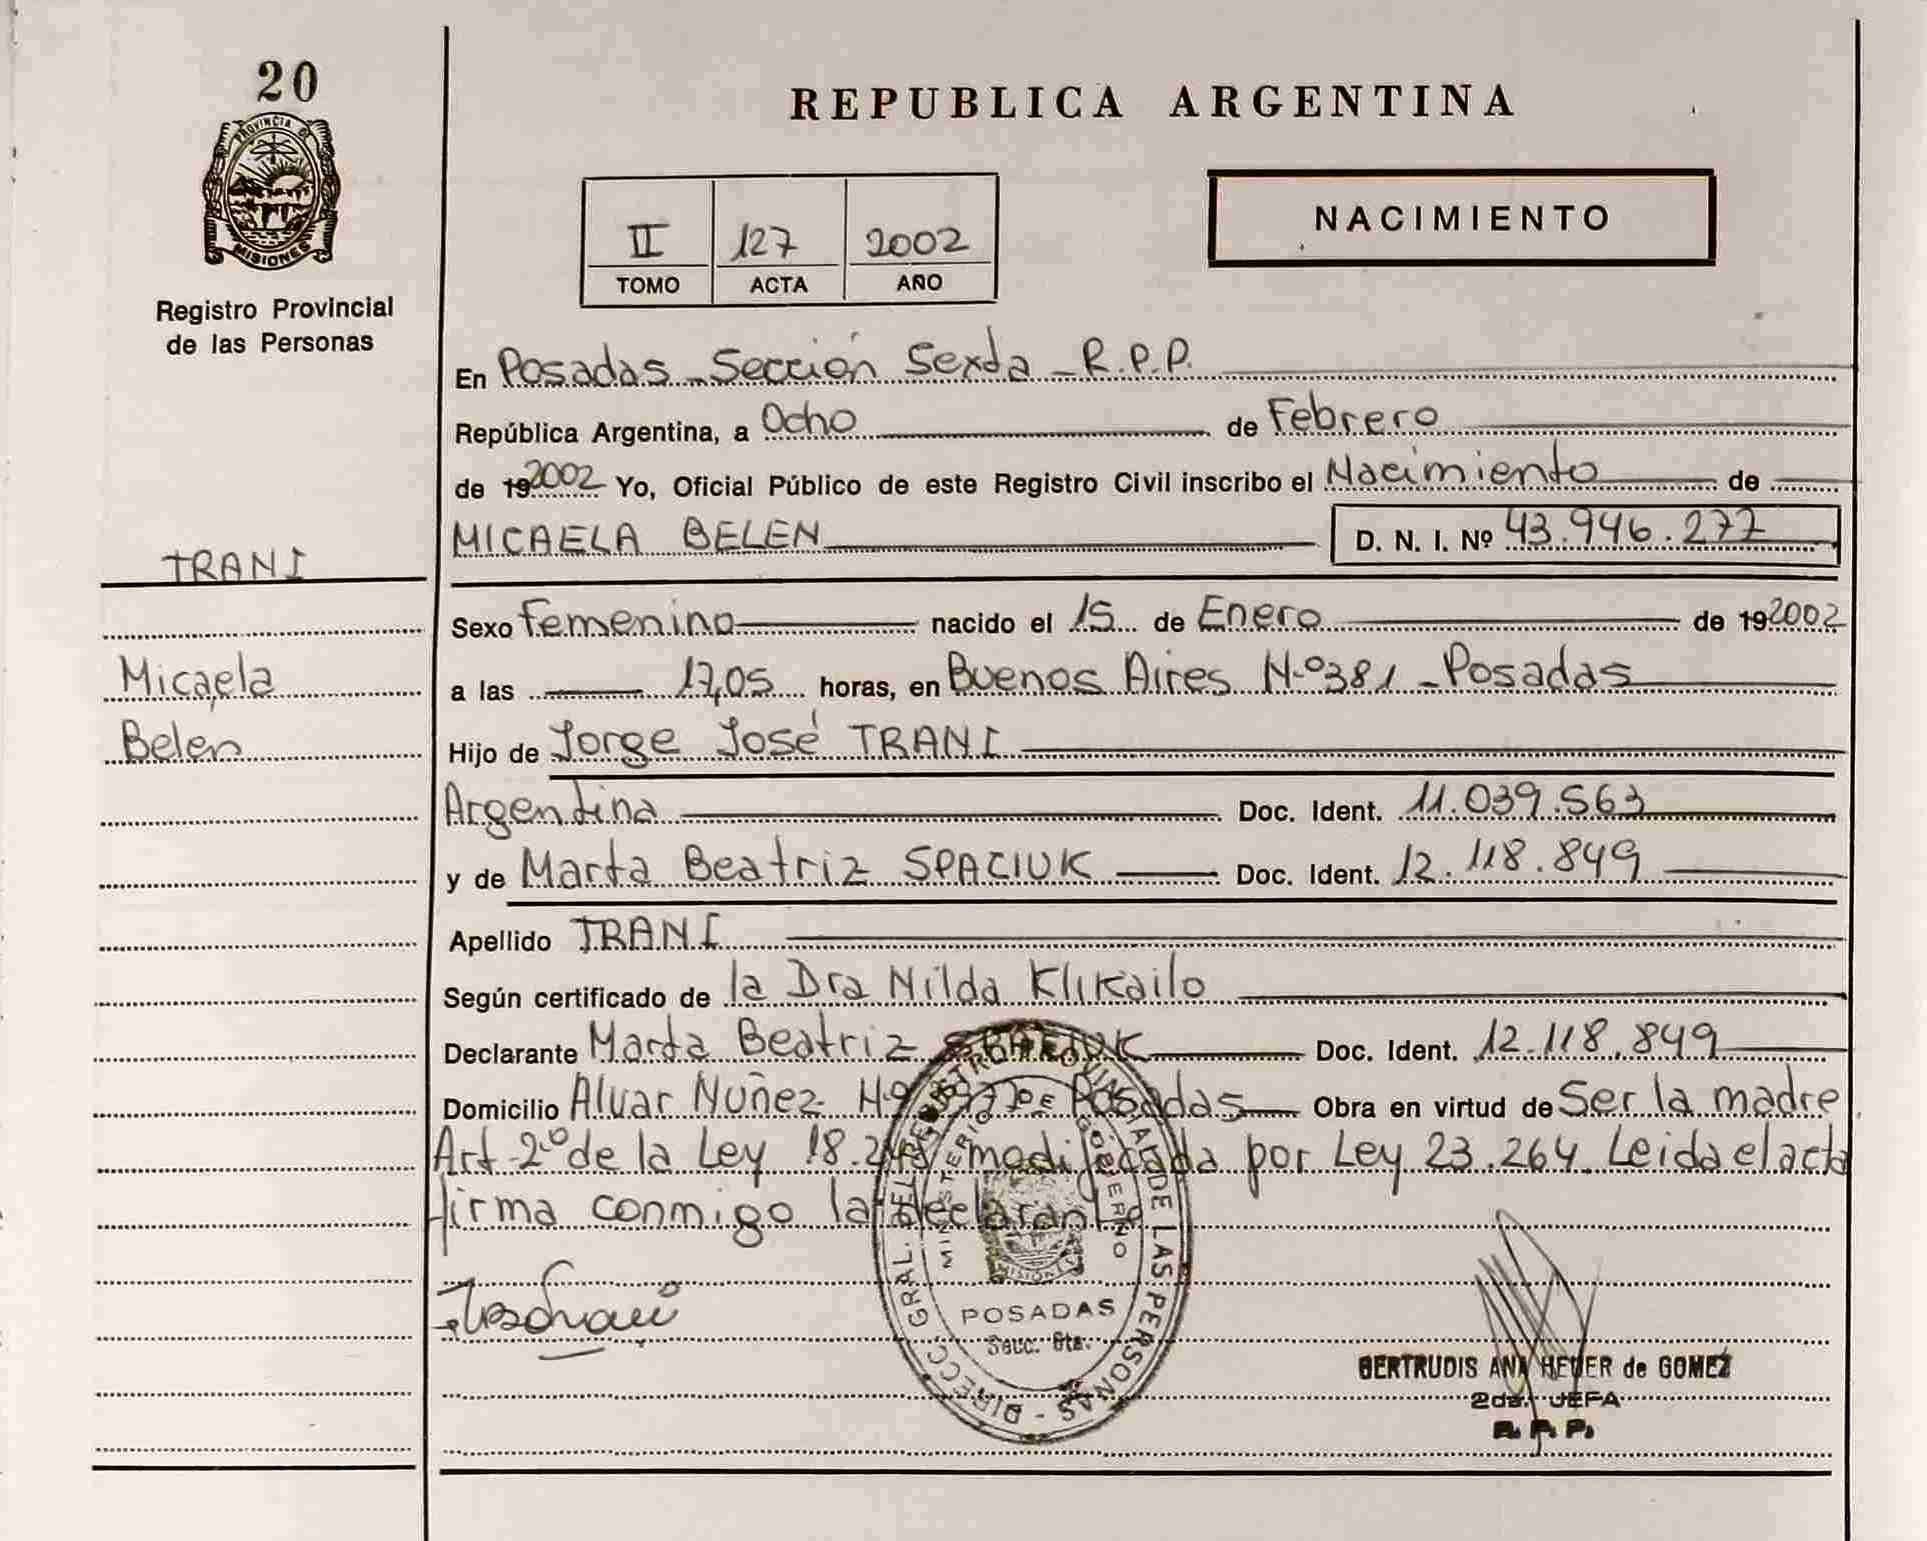 20
PROVINCIA DE
MISIONES
Registro Provincial
de las Personas
REPUBLICA ARGENTINA
II 127 2002
TOMO ACTA AÑO
NACIMIENTO
En Posadas - Sección Sexta - R.P.P.
República Argentina, a Ocho de Febrero
de 192002 Yo, Oficial Público de este Registro Civil inscribo el Nacimiento de
MICAELA BELEN D. N. I. Nº 43.946.277
TRANI
Sexo Femenino nacido el 15 de Enero de 192002
Micaela
a las 17,05 horas, en Buenos Aires N.º 381 - Posadas
Belen
Hijo de Jorge José TRANI
Argentina Doc. Ident. 11.039.563
y de Marta Beatriz SPACIUK Doc. Ident. 12.118.849
Apellido TRANI
Según certificado de la Dra Nilda Klikailo
Declarante Marta Beatriz SPACIUK Doc. Ident. 12.118.849
Domicilio Alvar Nuñez Posadas Obra en virtud de Ser la madre
Art 2º de la Ley modificada por Ley 23.264 Leida el acta
firma conmigo la declarante
DIRECC. GRAL. DEL REGISTRO PROVINCIAL DE LAS PERSONAS
MINISTERIO DE GOBIERNO
MISIONES
POSADAS
Secc. 6ta.
GERTRUDIS ANA de GOMEZ
2da. JEFA
R. P. P.